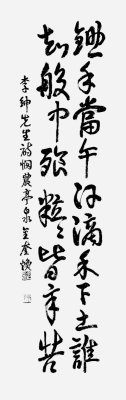 鋤禾當午汗滴禾下土誰
知般中飱粒粒皆辛苦
李紳先生詩憫農亭泉